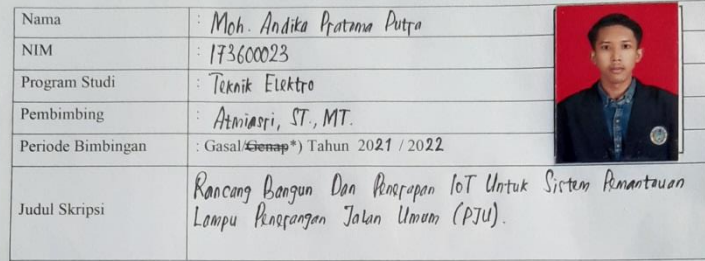 Nama : Moh. Andika Pratama Putra
NIM : 173600023
Program Studi : Teknik Elektro
Pembimbing : Atmiasri, ST., MT.
Periode Bimbingan : Gasal/Genap*) Tahun 2021 / 2022
Judul Skripsi Rancang Bangun Dan Penerapan IoT Untuk Sistem Pemantauan
Lampu Penerangan Jalan Umum (PJU).